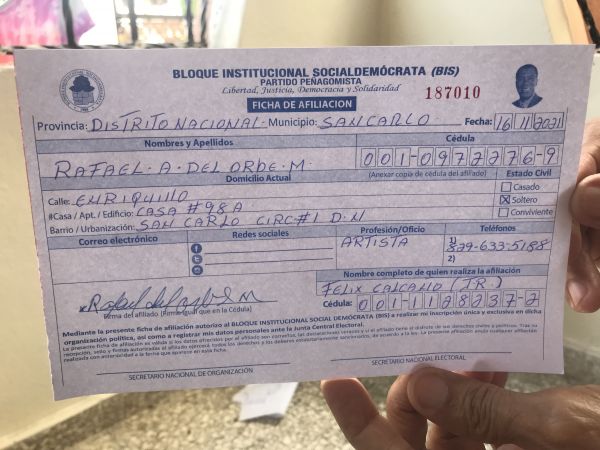 BLOQUE INSTITUCIONAL SOCIALDEMÓCRATA (BIS)
PARTIDO PEÑAGOMISTA
Libertad, Justicia, Democracia y Solidaridad
187010
FICHA DE AFILIACION
Provincia: DISTRITO NACIONAL. Municipio: SAN CARLO Fecha: 16 11 2021
Nombres y Apellidos Cédula
RAFAEL. A. DEL ORBE. M. 001-0972276-9
Domicilio Actual (Anexar copia de cédula del afiliado) Estado Civil
Calle: ENRIQUILLO Casado
#Casa / Apt. / Edificio: CASA #98A X Soltero
Barrio / Urbanización: SAN CARLO CIRC#1 D.N Conviviente
Correo electrónico Redes sociales Profesión/Oficio Teléfonos
ARTISTA 1) 829-633-5188
2)
Nombre completo de quien realiza la afiliación
FELIX CALCAÑO (JR.)
Firma del afiliado (Firma igual que en la Cédula) Cédula: 001-1128237-2
Mediante la presente ficha de afiliación autorizo al BLOQUE INSTITUCIONAL SOCIAL DEMÓCRATA (BIS) a realizar mi inscripción única y exclusiva en dicha
organización política, así como a registrar mis datos personales ante la Junta Central Electoral.
SECRETARIO NACIONAL DE ORGANIZACIÓN SECRETARIO NACIONAL ELECTORAL